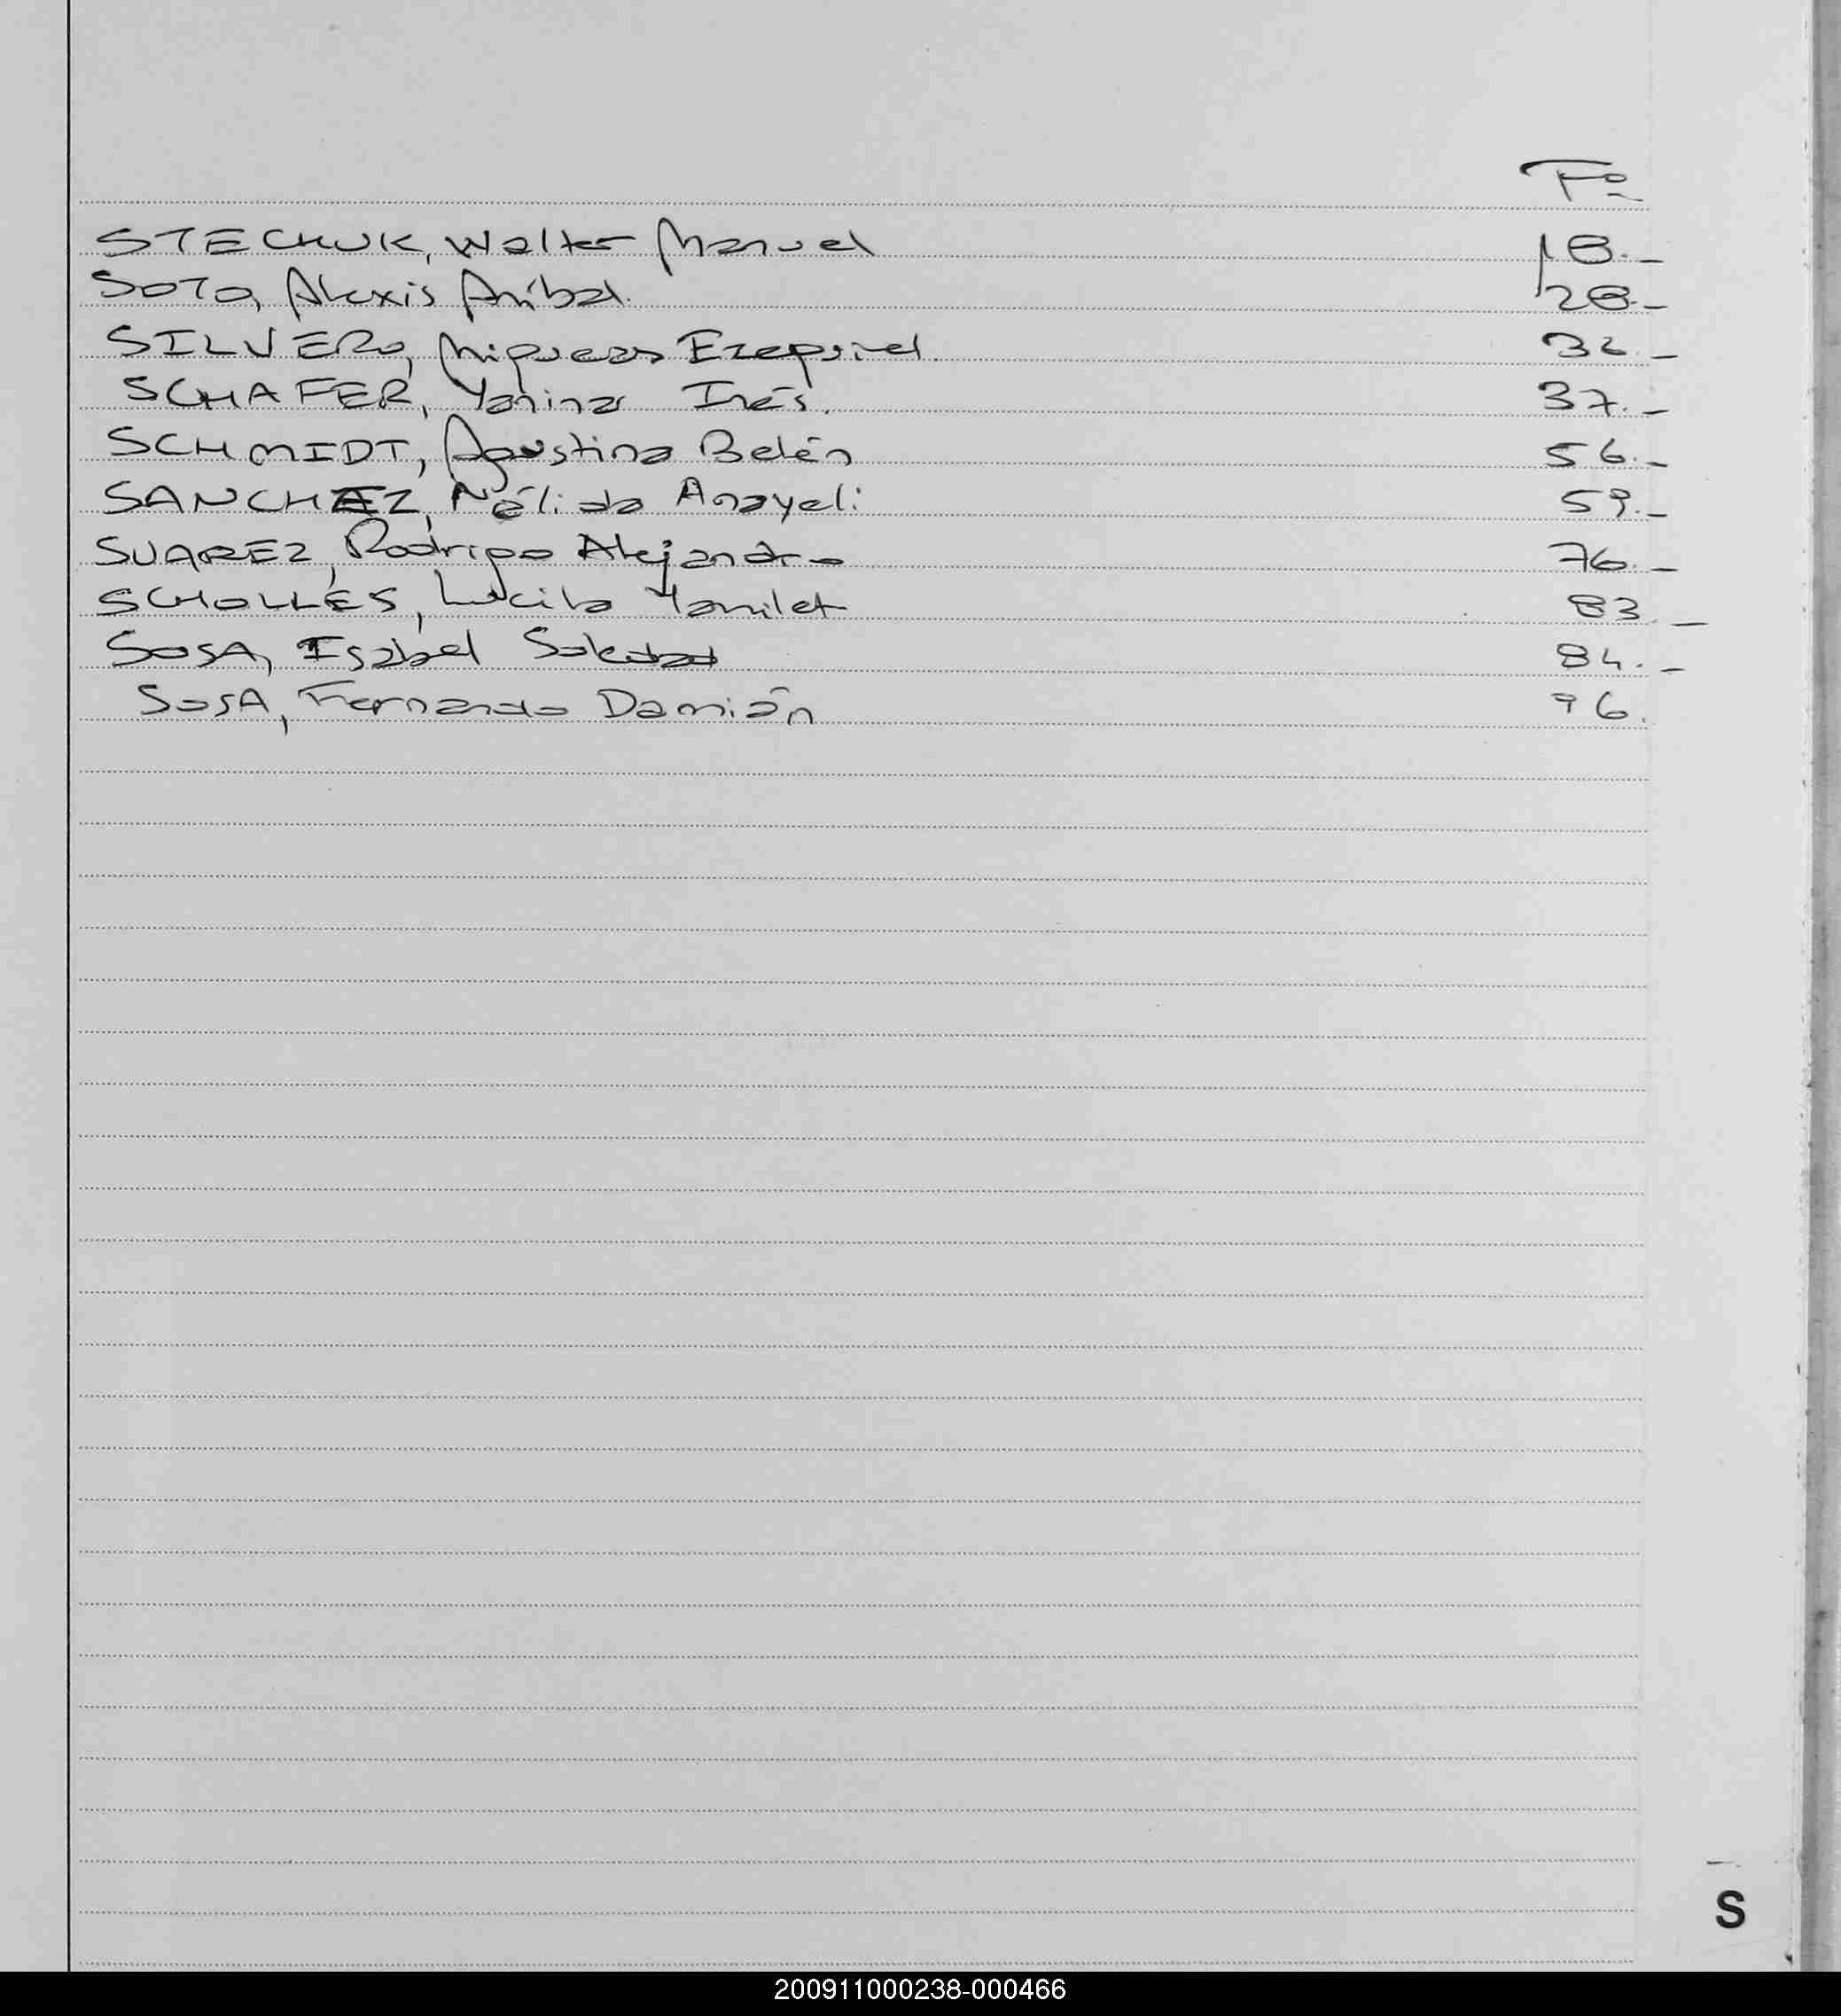 Fº
STECHUK, Walter Manuel 18.-
SOTO, Alexis Aníbal. 28.-
SILVERO, Miqueas Ezequiel. 32.-
SCHAFER, Yanina Inés. 37.-
SCHMIDT, Agustina Belén 56.-
SANCHEZ, Nélida Anayeli 59.-
SUAREZ, Rodrigo Alejandro 76.-
SCHOLLES, Lucila Yamilet 83.-
SOSA, Isabel Soledad 84.-
SOSA, Fernando Damián 96.
S
200911000238-000466